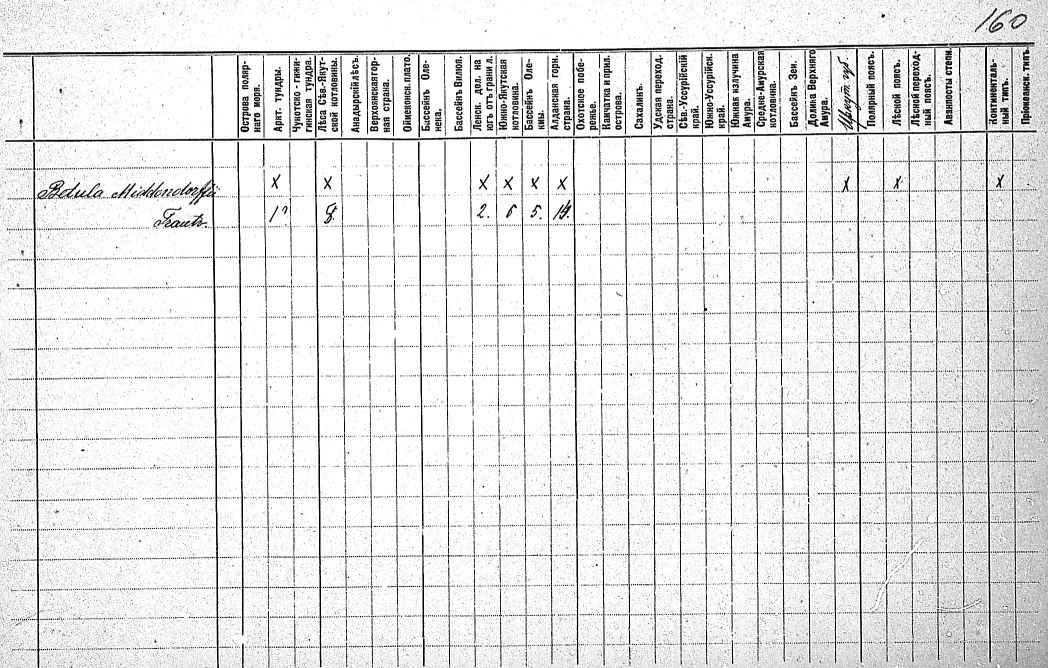 160
Острова поляр-
наго моря.
Аркт. тундры.
Чукотско-гижи-
гинская тундра.
Лѣса Сѣв.-Якут-
ской котловины.
Анадырскій лѣсъ.
Верхоянская гор-
ная страна.
Оймеконск. плато.
Бассейнъ Оле-
нека.
Бассейнъ Вилюя.
Ленск. дол. на
югъ отъ грани л.
Южно-Якутская
котловина.
Бассейнъ Олек-
мы.
Алданская горн.
страна.
Охотское побе-
режье.
Камчатка и прил.
острова.
Сахалинъ.
Удская переход.
страна.
Сѣв.-Уссурійскій
край.
Южно-Уссурійск.
край.
Южная излучина
Амура.
Средне-Амурская
котловина.
Бассейнъ Зеи.
Долина Верхняго
Амура.
Иркут. губ.
Полярный поясъ.
Лѣсной поясъ.
Лѣсной переход-
ный поясъ.
Аванпосты степи.
Континенталь-
ный типъ.
Приокеанск. типъ.
Betula Middendorffii X X X X X X X X X
Trautv. 1? 8. 2. 6 5. 14.